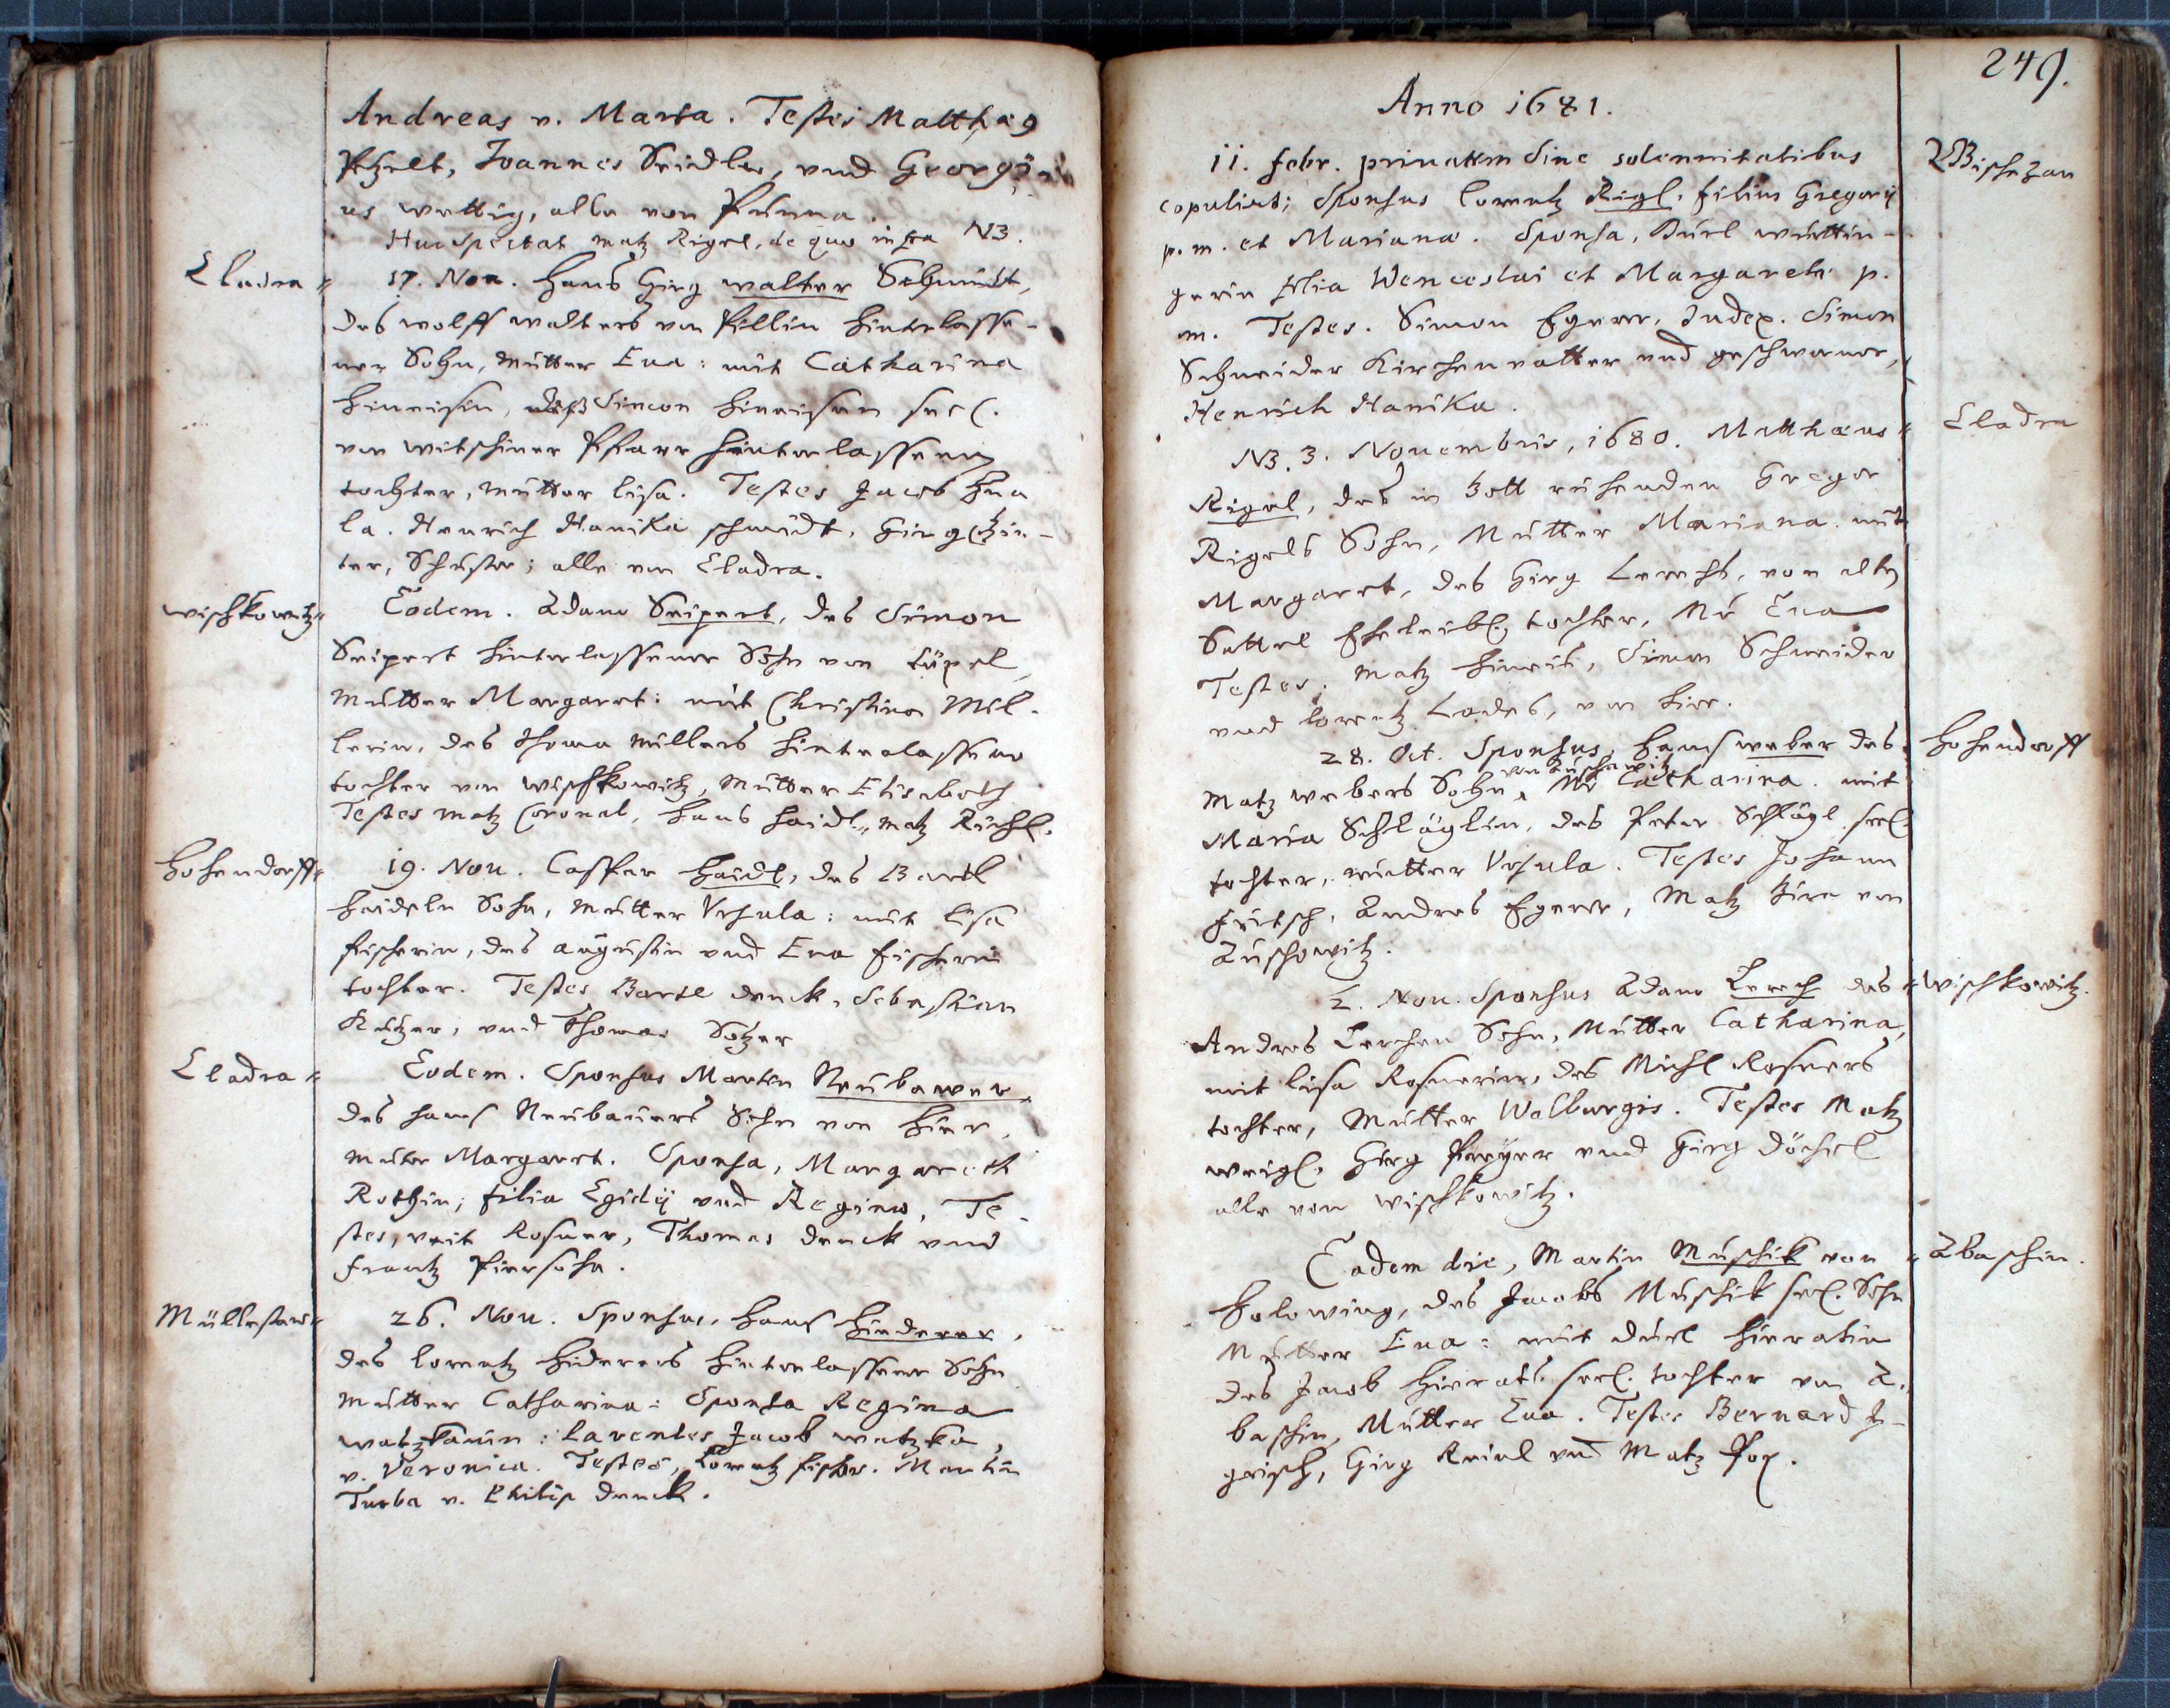 Andreas v. Marta. Testes Matthæg
Pfzelt, Joannes Seidler, vnd Georgi
us wettig, alle von Pfunna.
Huc Spectat matz Rigel, de quo infra NB.
Eladra
17. Nou. Hans Girg walter Schmidt,
des wolff walters von Pillin hinterlasse-
ner Sohn, mutter Eua: mit Catharina
Hinnisin, deß Simon Hinnisen seel.
von witschiner Pfarr hinterlassene
tochter, mutter lisa. Testes Jacob
la. Henrich Hanika schmidt, Girg
ter, Schuster; alle von Eladra.
wischkowitz
Eodem. Adam Seipert, des Simon
Seipert hinterlassener Sohn von
mutter Margaret: mit Christina Mil-
lerin, des thoma millers hinterlassene
tochter von wischkowitz, mutter Elisabeth
Testes matz Coronat, Hans Haidl, matz Richl.
Hohendorff
19. Nou. Casper Haidl, des Bartl
Haideln Sohn, mutter Vrsula: mit lisa
fischerin, des augustin vnd Eua fischerin
tochter. Testes Bartl denck, Sebastian
Kutzer, vnd Thomas Sötzer
Eladra
Eodem. Sponsus Martin Neubawer
des Hans Neubauers Sohn von hier,
muter Margaret. Sponsa, Margareth
Rothin; filia Egidij vnd Regina, Te-
stes, veit Rosner, Thomas denck vnd
frantz Piersohn.
Müllestaw
26. Nou. Sponsus, Hans Hinderer,
des lorentz Hinderers hinterlassener Sohn
mutter Catharina: Sponsa Regina
watzkanin: parentes Jacob watzka,
v. Veronica. Testes, Lorentz fischer. Martin
Turba v. Philip denck.
249.
Anno 1681.
Wischezan
11. febr. priuatim Sine solennitatibus
copuliert; Sponsus lorentz Rigl. filius Gregorij
p. m. et Mariana. Sponsa, Durl wuttin-
gerin filia Wenceslai et Margareth p.
m. Testes. Simon Egerer, Judex. Simon
Schneider Kirchenvatter vnd geschworner,
Henrich Hanika.
Eladra
NB. 3. Nouembris, 1680. Matthæus
Rigel, des in Gott ruhenden Gregor
Rigels Sohn, Mutter Mariana. mit
Margaret, des Girg Lerchs, von alten
Sattel Eheleibl. tochter, Mr. Eua
Testes. Matz Hineis, Simon Schneider
vnd lorentz Lades, von hier.
Hohendorff
28. Oct. Sponsus Hans weber des
Matz webers Sohn von Auschowitz, Mr. Catharina. mit
Maria Schläglin, des Peter Schlägl seel.
tochter, mutter Vrsula. Testes Johann
fritsch, Andres Egerer, Matz Zirn von
Auschowitz.
wischkowitz.
2. Nou. Sponsus Adam Lerch des
Andres Lerchen Sohn, Mutter Catharina,
mit lisa Rosnerin, des Michl Rosners
tochter, Mutter Walburgis. Testes Matz
weigl. Girg Preyer vnd Girg döchel
alle von wischkowitz.
Abaschin.
Eadem die, Martin Muschik von
Holowing, des Jacobs Muschik seel. Sohn
Mutter Eua: mit durl Hieratin
des Jacob Hierats seel. tochter von A-
baschin, Mutter Eua. Testes Bernard J-
grisch, Girg Reinl vnd Matz Pox.